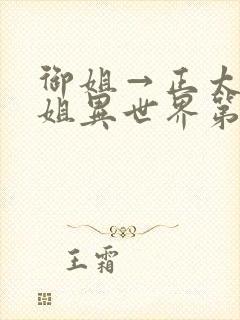 御姐→正太
姐異世界第
王霜